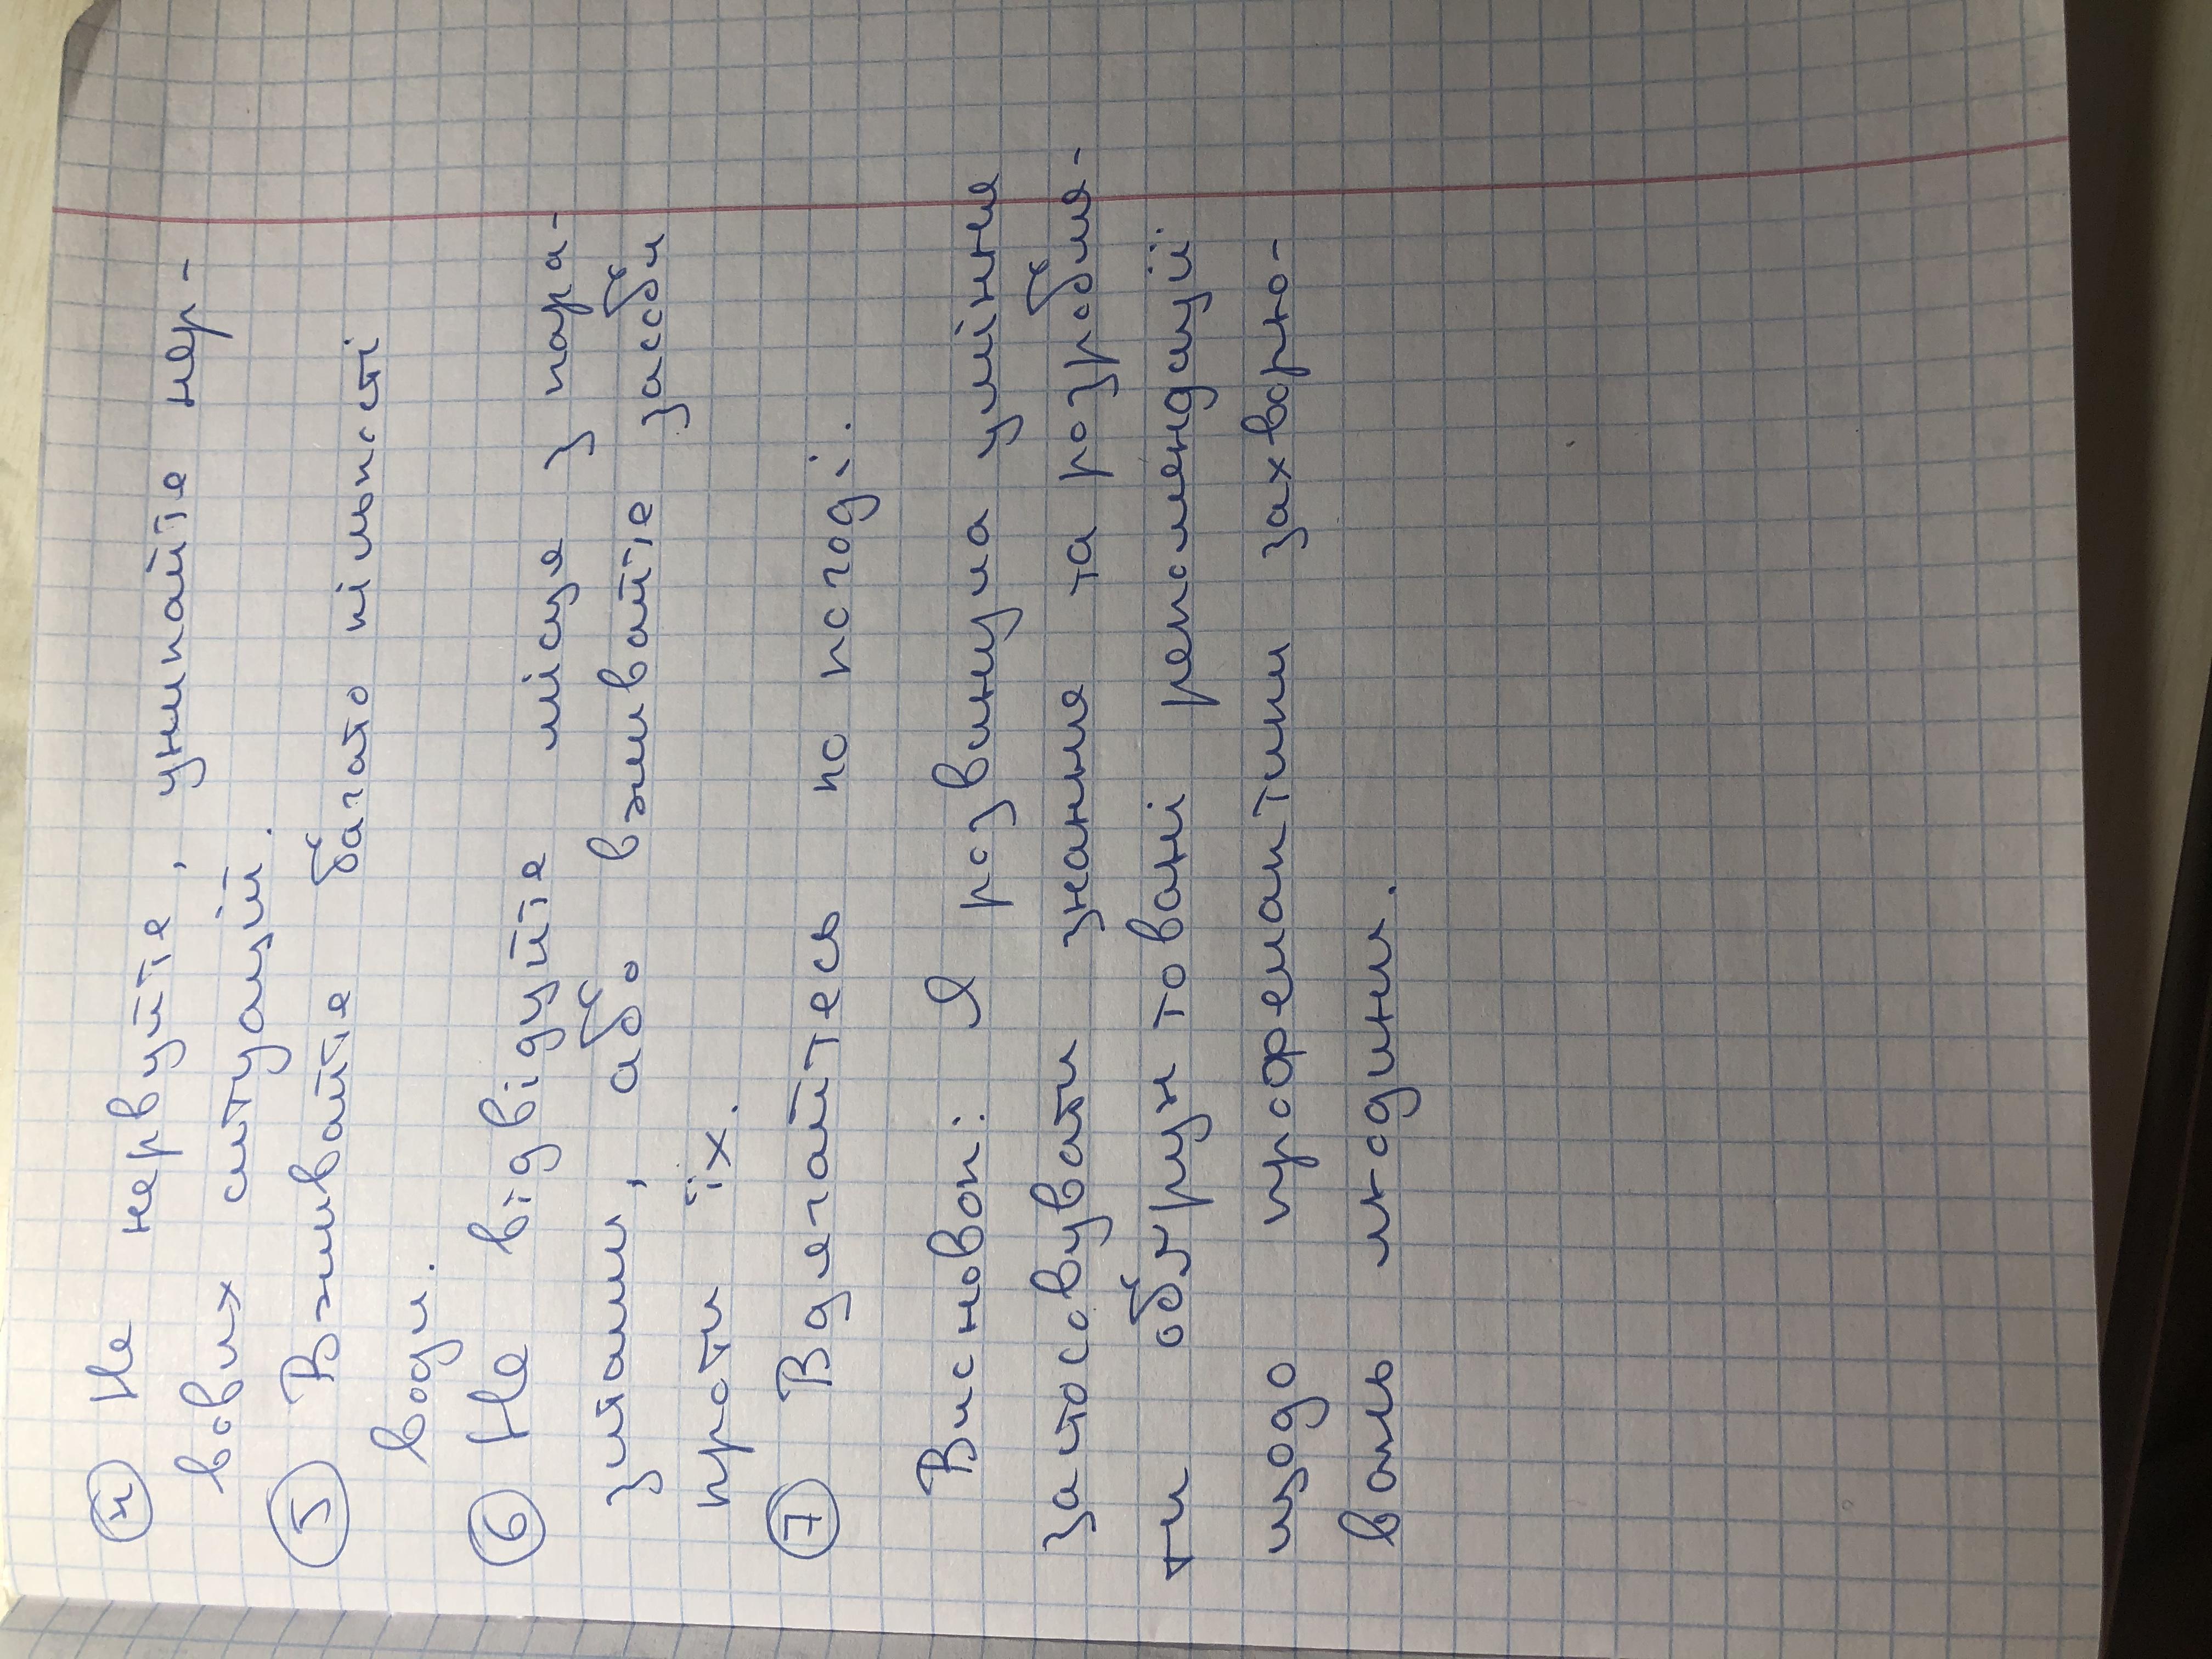 ④ Не нервуйте, уникайте нер-
вових ситуацій.
⑤ Вживайте багато кількості
води.
⑥ Не відвідуйте місце з пара-
зитами, або вживайте засоби
проти їх.
⑦ Вдягайтесь по погоді.
Висновок: Я розвинула уміння
застосовувати знання та розробля-
ти обґрунтовані рекомендації
щодо профілактики захворю-
вань людини.